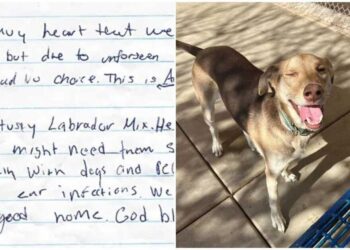 heart that we
but due to unforseen
no choice. This is
Husky Labrador Mix. He
might need from s
with dogs and
ear infections. We
good home. God bl